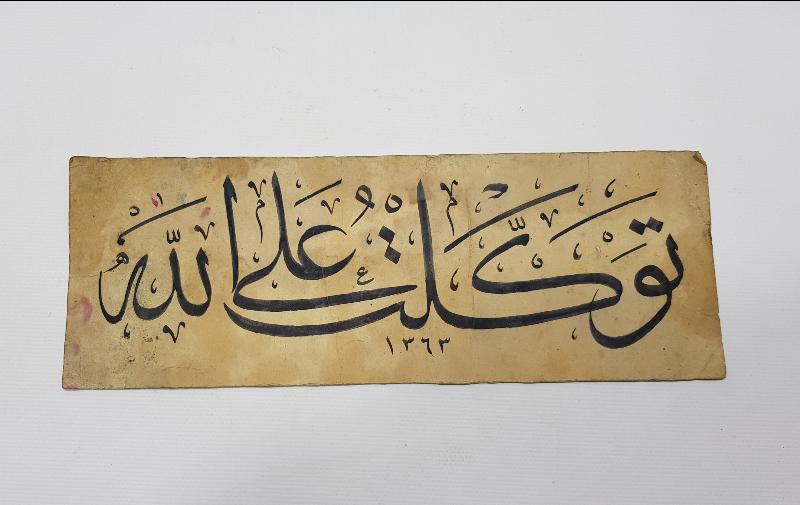 توكلت على الله
١٣٦٣